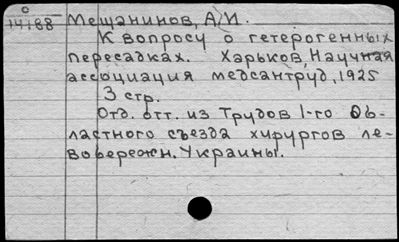 О
14188 Мещанинов, А.И.
К вопросу о гетерогенных
пересадках. Харьков, Научная
ассоциация медсантруд, 1925
3 стр.
Отд. отт. из Трудов 1-го Об-
ластного съезда хирургов ле-
вобережн. Украины.